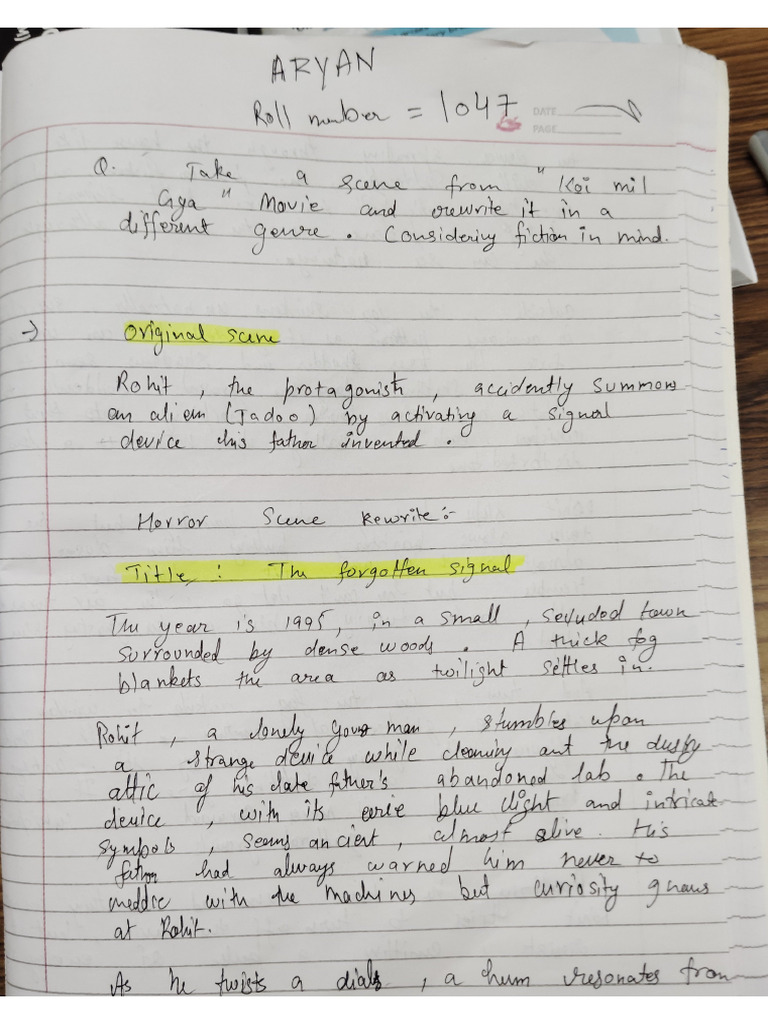 ARYAN
Roll number = 1047
DATE
PAGE
Q. Take a scene from "Koi mil
Gya" Movie and rewrite it in a
different genre. Considering fiction in mind.
→ Original scene
Rohit, the protagonist, accidently summons
an alien (Jadoo) by activating a signal
device his father invented.
Horror Scene Rewrite:-
Title: The forgotten signal
The year is 1995, in a small, secluded town
surrounded by dense woods. A thick fog
blankets the area as twilight settles in.
Rohit, a lonely young man, stumbles upon
a strange device while cleaning out the dusty
attic of his late father's abandoned lab. The
device, with its eerie blue light and intricate
symbols, seems ancient, almost alive. His
father had always warned him never to
meddle with the machines but curiosity gnaws
at Rohit.
As he twists a dial, a hum resonates from